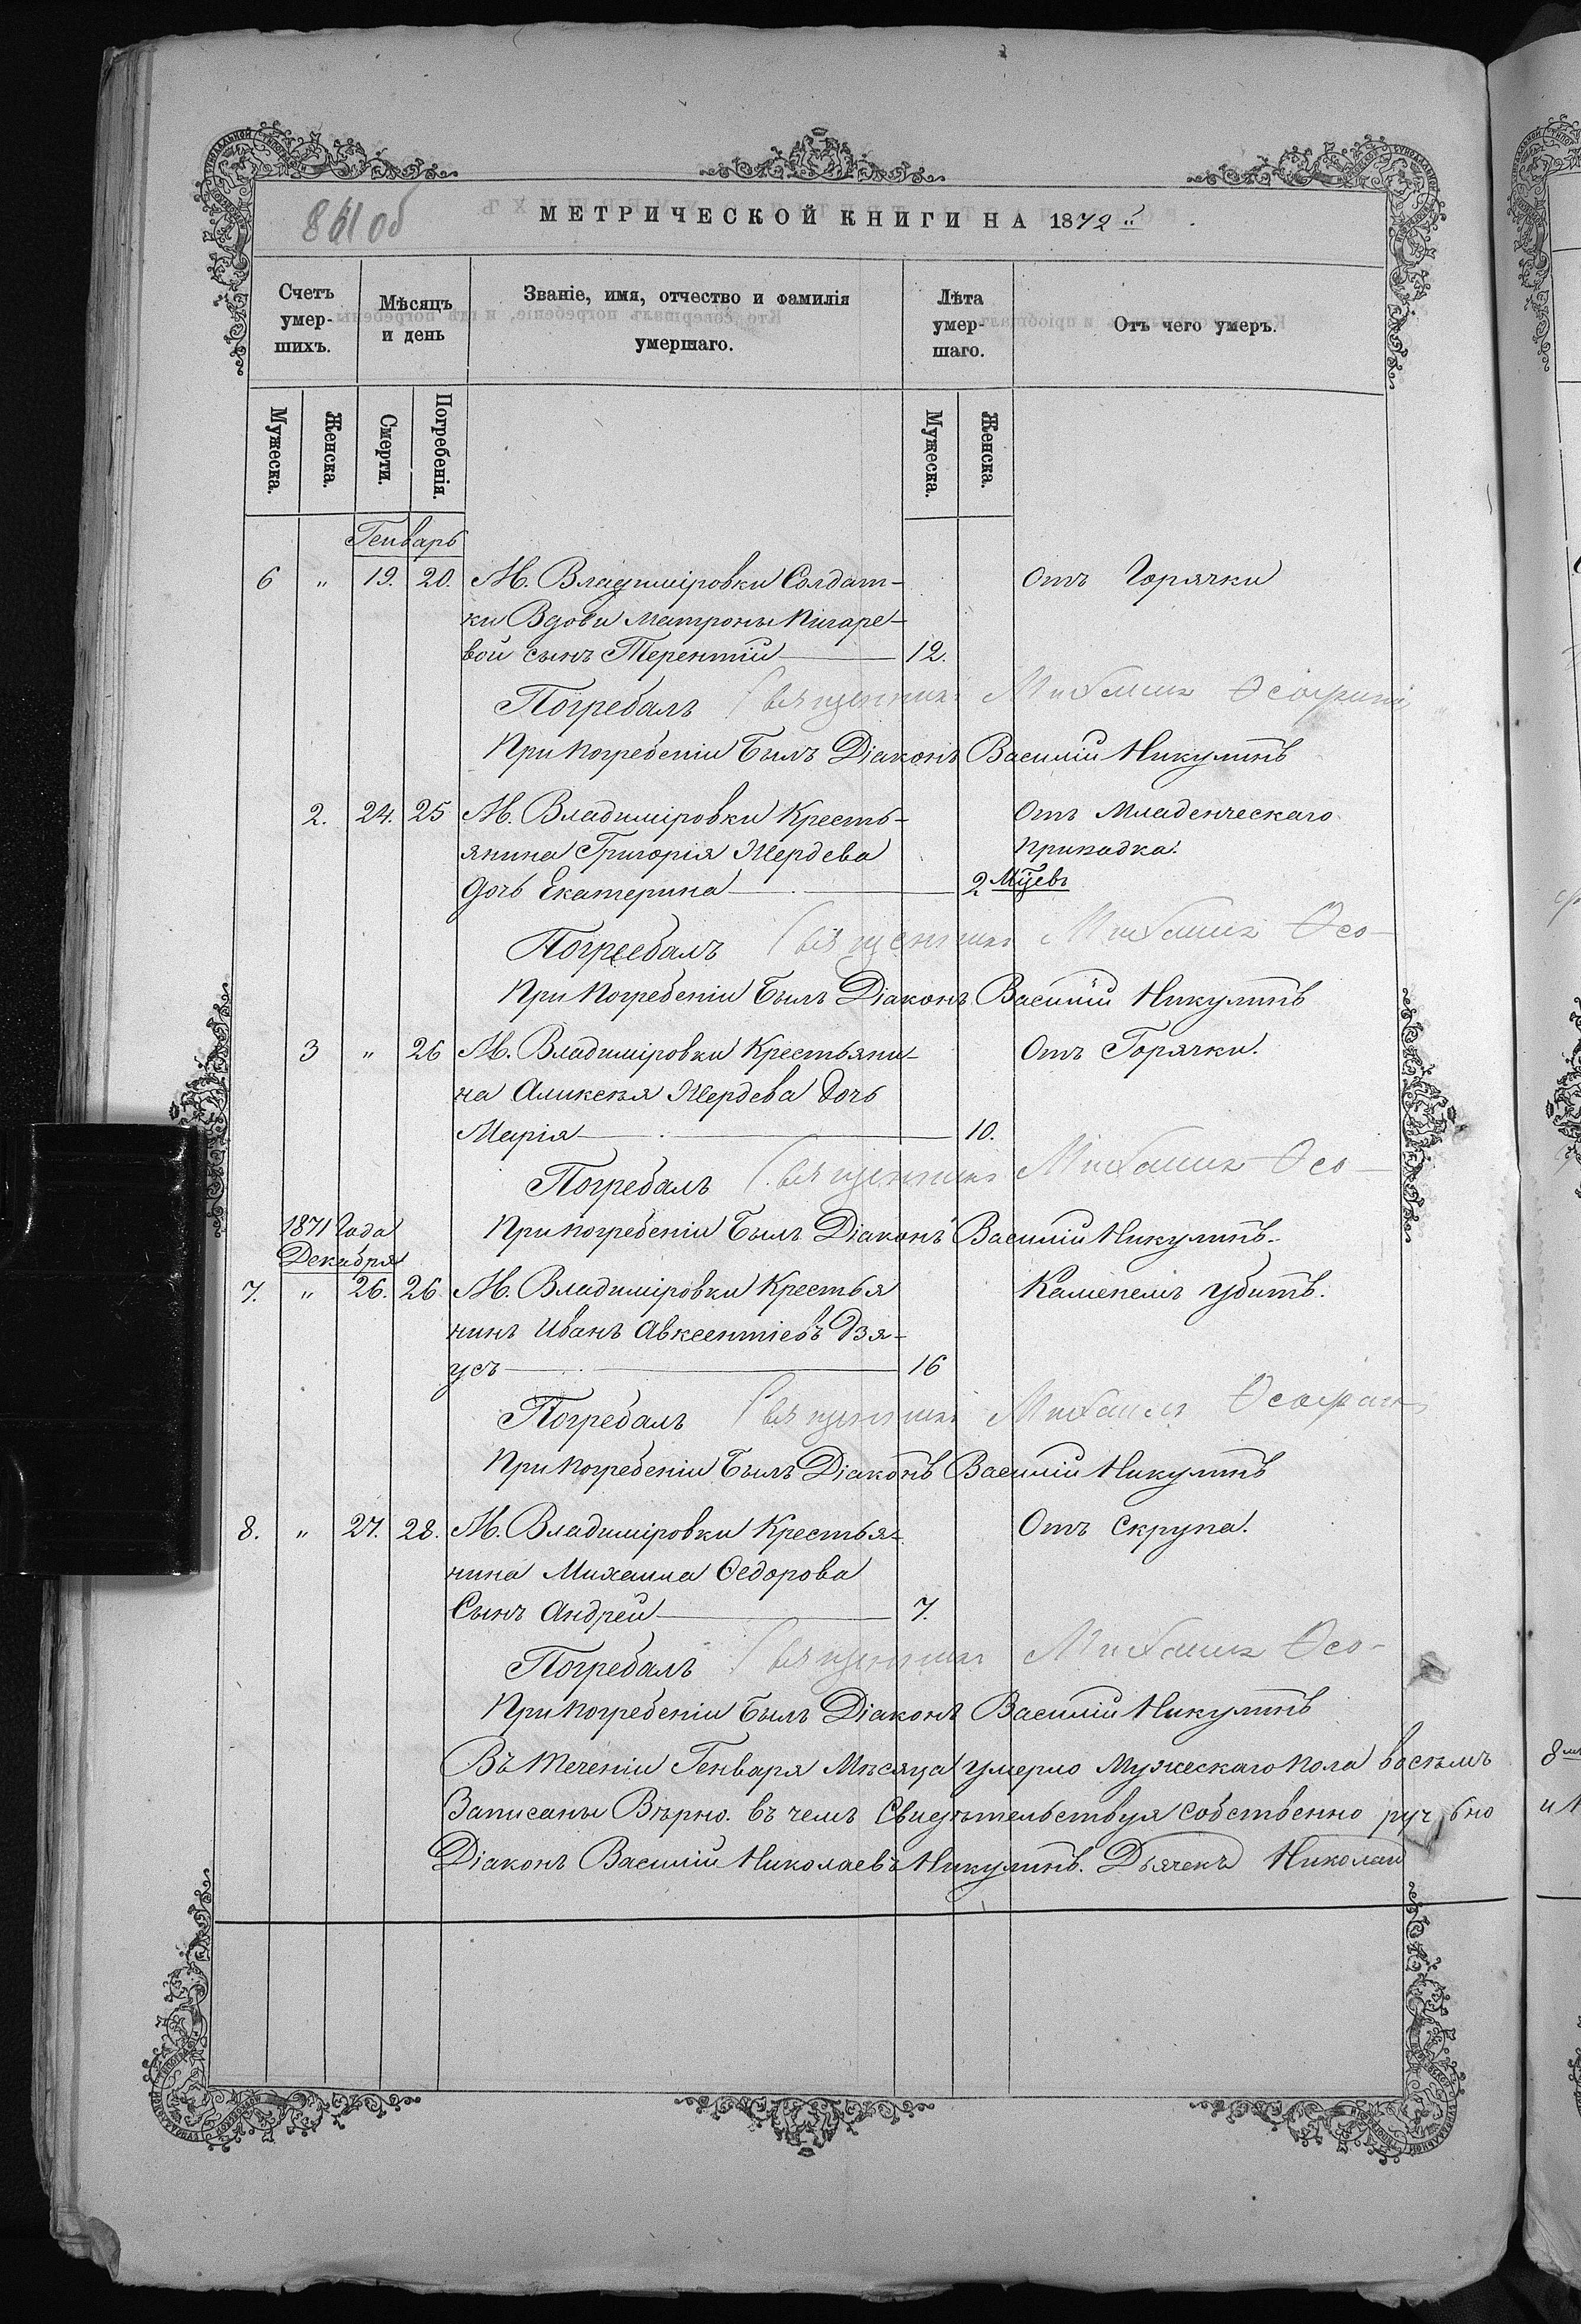 861 об
МЕТРИЧЕСКОЙ КНИГИ НА 1872 й
Счетъ умер-шихъ.
Мѣсяцъ и день
Званіе, имя, отчество и фамилія умершаго.
Лѣта умер-шаго.
Отъ чего умеръ.
Мужеска.
Женска.
Смерти.
Погребенія.
Мужеска.
Женска.
Генварь
6 " 19. 20. М. Владиміровки Солдат- Отъ Горячки
ки Вдови Матроны Пигаре-
вой сынъ Терентій 12.
Погребалъ Священникъ Михаилъ
При погребеніи Былъ Діаконъ Василій Никулинъ
2. 24. 25 М. Владиміровки Кресть- Отъ Младенческаго
янина Григорія Жердева припадка.
дочь Екатерина 2 Мцевъ
Погребалъ Священникъ Михаилъ Ѳео-
При Погребеніи Былъ Діаконъ Василій Никулинъ
3 " 26 М. Владиміровки Крестьяни- Отъ Горячки.
на Аликсея Жердева Дочь
Марія 10.
Погребалъ Священникъ Михаилъ Ѳео-
При погребеніи Былъ Діаконъ Василій Никулинъ.
1871 Года
Декабря
7. " 26. 26. М. Владиміровки Крестья Каменемъ убитъ.
нинъ Иванъ Авксентіевъ Дзя-
усъ 16
Погребалъ Священникъ Михаилъ
При погребеніи Былъ Діаконъ Василій Никулинъ
8. " 27. 28. М. Владиміровки Крестья- Отъ Скрупа.
нина Михаила Ѳедорова
Сынъ Андрей 7.
Погребалъ Священникъ Михаилъ Ѳео-
При погребеніи Былъ Діаконъ Василій Никулинъ
Въ теченіи Генваря Мѣсяца умерло Мужескаго пола восѣмъ
Записаны Вѣрно. въ чемъ Свидѣтельствуя собственно
Діаконъ Василій Николаевъ Никулинъ. Дьячекъ Николай